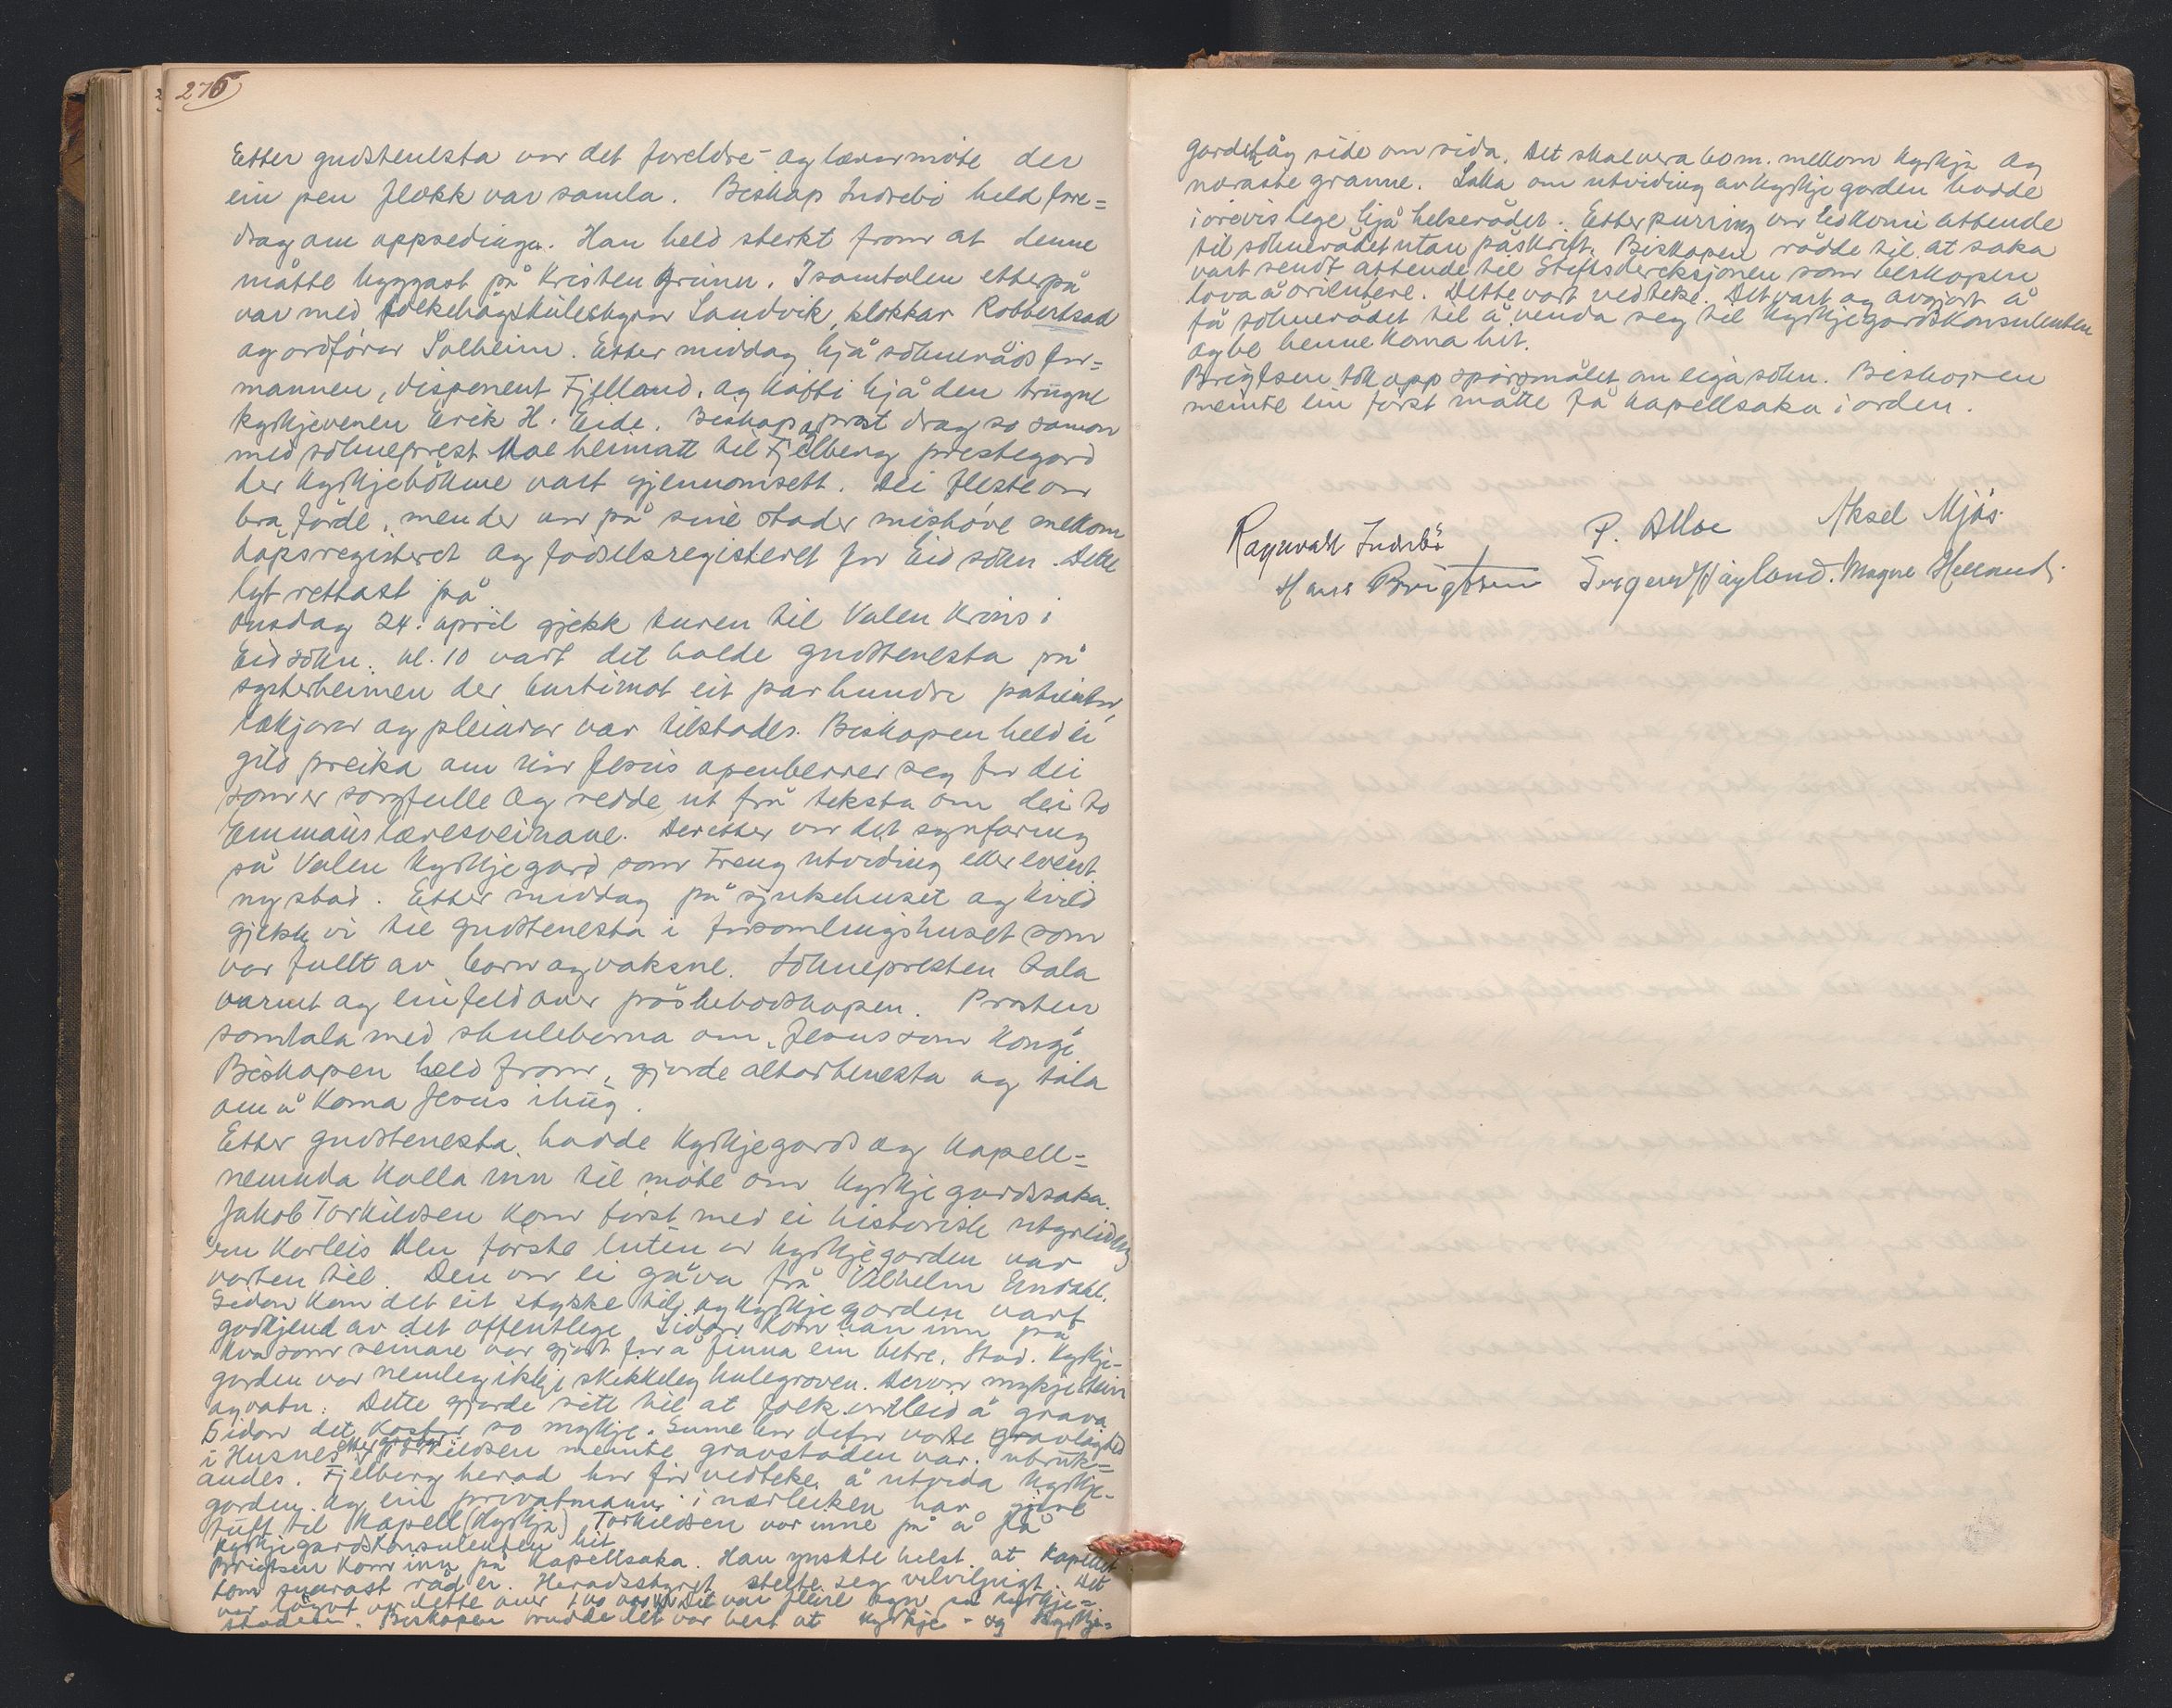 276
Etter gudstenesta var det foreldre- og lærarmöte der
ein pen flokk var samla. Biskop Indrebö held fore=
drag om oppsedinga. Han held sterkt fram at denne
måtte byggast på Kristen grunn. I samtalen etterpå
var med folkehögskulestyrar Sandvik, klokkar Robbertstad
og ordförar Solheim. Etter middag hjå sokneråds for=
mannen, disponent Fjelland, og kaffi hjå den trugne
kyrkjevenen Erik H. Eide. Biskop og prost drog so saman
med sokneprest Moe heimatt til Fjelberg prestegard
der kyrkjebökene vart gjennomsett. Dei fleste var
bra förde, men der var på sine stader mishöve mellom
dåpsregisteret og födselsregisteret for Eid sokn. Dette
lyt rettast på
Onsdag 24. april gjekk turen til Valen Krins i
Eid sokn. Kl. 10 vart det halde gudstenesta på
systerheimen der burtimot eit par hundre patientar,
lækjarar og pleiarar var tilstades. Biskopen held ei
gild preika om när Jesus openberrer seg for dei
som er sorgfulle og redde ut frå teksta om dei to
Emmaus læresveinane. Deretter var det synfaring
på Valen kyrkjegard som treng utviding eller event.
ny stad. Etter middag på sjukehuset og kvild
gjekk vi til gudstenesta i forsamlingshuset som
var fullt av born og vaksne. Soknepresten tala
varmt og einfeld over påskebodskapen. Prosten
samtala med skuleborna om "Jesus som konge".
Biskopen held fram, gjorde altartenesta og tala
om å koma Jesus ihug.
Etter gudstenesta hadde kyrkjegards og kapell=
nemnda kalla inn til möte om kyrkjegardssaka.
Jakob Torkildsen kom först med ei historisk utgreiding
om korleis den förste luten av kyrkjegarden var
vorten til. Den var ei gåva frå Vilhelm Endahl.
Sidan kom det eit stykke til og kyrkjegarden vart
godkjend av det offentlege. Sidan kom han inn på
kva som seinare var gjort for å finna ein betre stad. Kyrkje-
garden var nemleg ikkje skikkeleg kulegraven. Der var mykje stein
og vatn. Dette gjorde sitt til at folk å grava
Sidan det kostar so mykje. Sume har difor vorte gravlagde
i Husnes. Torkildsen meinte gravstaden var ubruk=
andes. Fjelberg herad har för vedteke å utvida kyrkje-
garden. Og ein privatmann i nærleiken har gjeve
tuft til kapell (kyrkja). Torkildsen var inne på å få
kyrkjegardskonsulenten hit.
Brigtsen kom inn på kapellsaka. Han ynskte helst at kapellet
kom snarast råd er. Heradsstyret stelte seg velviljugt. Det
var dette over Det var fleire syn på kyrkje=
staden. Biskopen trudde det var best at kyrkje - og kyrkje=
garden låg side om sida. Det skal vera 60 m. mellom kyrkja og
næraste granne. Saka om utviding av kyrkjegarden hadde
i årevis lege hjå helserådet. Etter purring var ho komi attende
til soknerådet utan påskrift. Biskopen rådde til at saka
vart sendt attende til Stiftsdireksjonen som biskopen
lova å orientere. Dette vart vedteke. Det vart og avgjort å
få soknerådet til å venda seg til kyrkjegardskonsulenten
og be henne koma hit.
Brigtsen tok opp spörsmålet om eiga sokn. Biskopen
meinte ein först måtte få kapellsaka i orden.
Ragnvald Indrebö P. A. Moe Aksel Mjös
Hans Brigtsen Torgeir Høyland. Magne Helland.